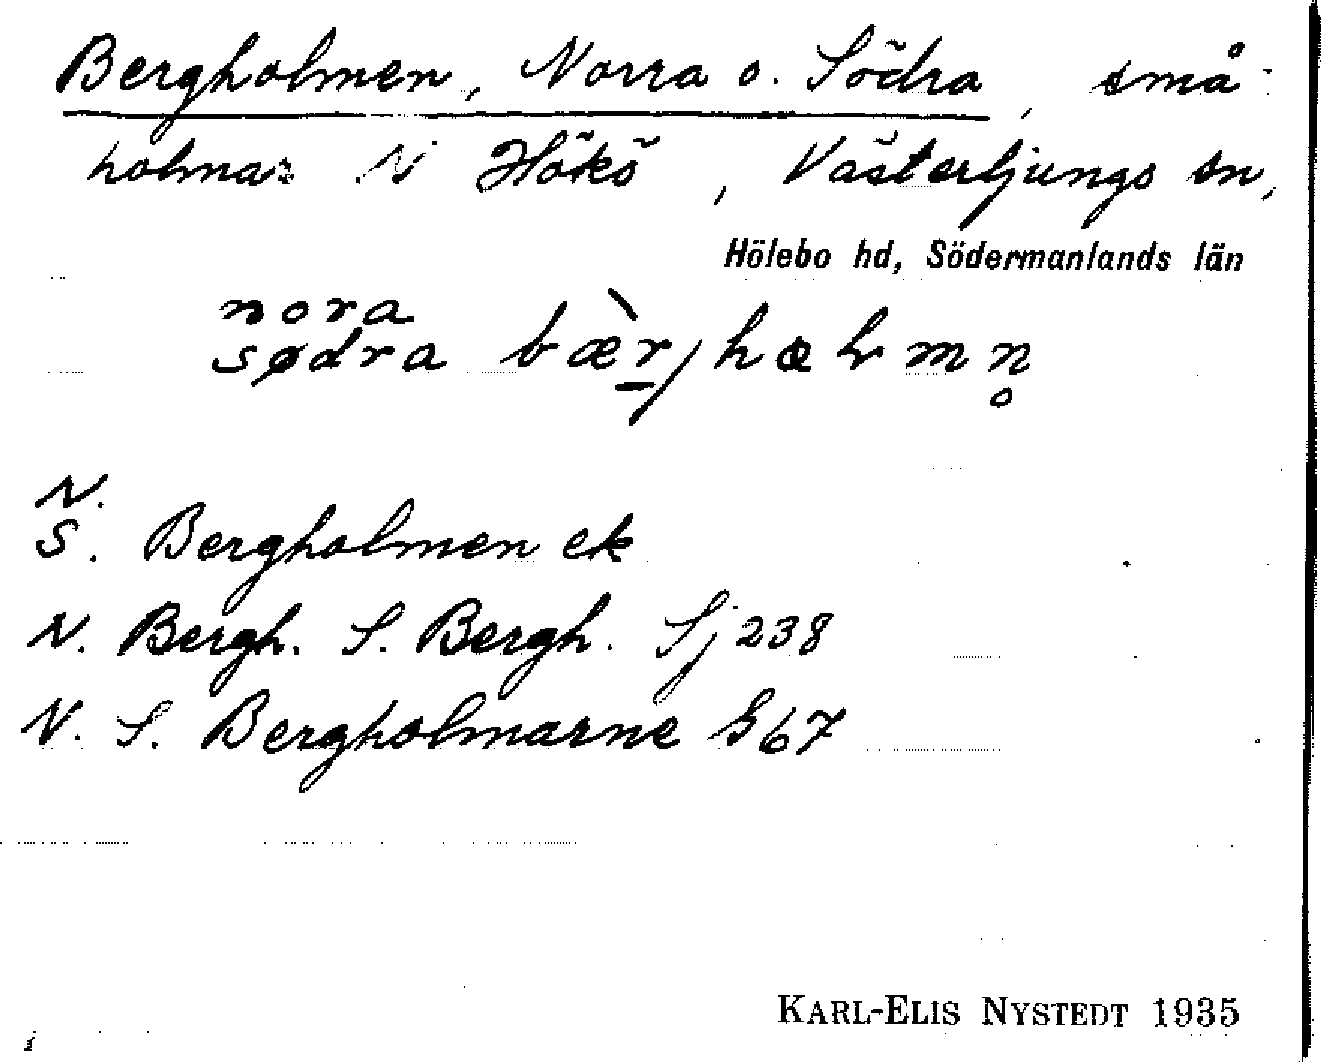 Bergholmen, Norra o. Södra, små-
holmar N Hökö, Västerljungs sn,
Hölebo hd, Södermanlands län
nora
södra bær/hælmn
N.
S. Bergholmen ek
N. Bergh. S. Bergh. Sj 238
N. S. Bergholmarne G67
KARL-ELIS NYSTEDT 1935